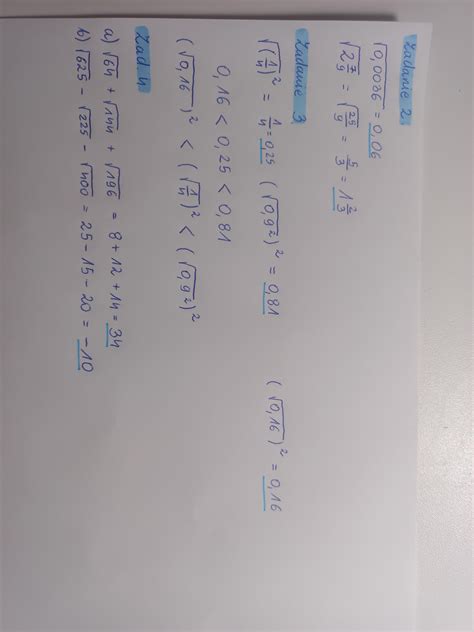 Zadanie 2
√0,0036 = 0,06
√2 7/9 = √25/9 = 5/3 = 1 2/3
Zadanie 3
√(1/4)² = 1/4 = 0,25 (√0,9²)² = 0,81 (√0,16)² = 0,16
0,16 < 0,25 < 0,81
(√0,16)² < (√1/4)² < (√0,9²)²
Zad 4
a) √64 + √144 + √196 = 8 + 12 + 14 = 34
b) √625 - √225 - √400 = 25 - 15 - 20 = - 10